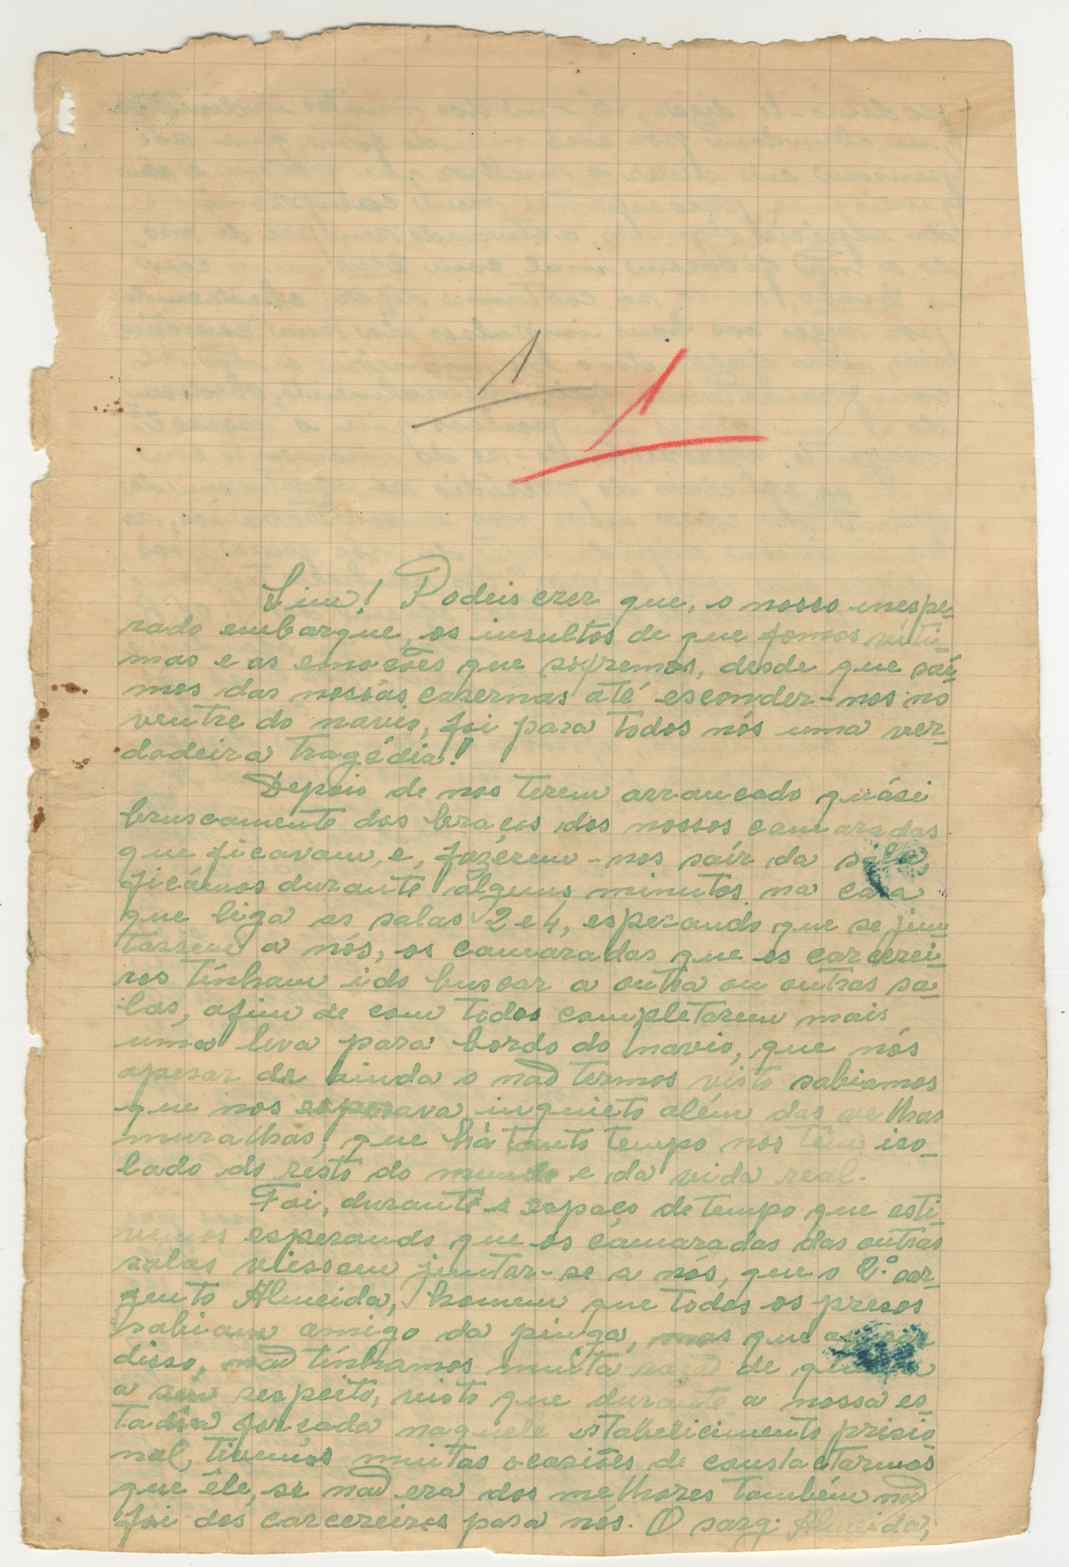 1
1
Sim! Podeis crer que, o nosso inespe-
rado embarque, os insultos de que fomos víti-
mas e as emoções que sofremos, desde que saí-
mos das nossas casernas até esconder-nos no
ventre do navio, foi para todos nós uma ver-
dadeira tragédia!
Depois de nos terem arrancado quási
bruscamente dos braços dos nossos camaradas
que ficavam, e, fazerem-nos saír da sala
ficámos durante alguns minutos na
que liga as salas 2 e 4, esperando que se jun-
tassem a nós, os camaradas que os carcerei-
ros tinham ido buscar a outra ou outras sa-
las, afim de com todos completarem mais
uma leva para bordo do navio, que nós
apesar de ainda o não termos visto sabiamos
que nos esperava inquieto além das velhas
muralhas, que há tanto tempo nos têm iso-
lado do resto do mundo e da vida real.
Foi, durante o espaço de tempo que esti-
vemos esperando que os camaradas das outras
salas viessem juntar-se a nós, que o 2.º sar-
gento Almeida, homem que todos os presos
sabiam amigo da pinga, mas que
disso, não tínhamos muita de
a seu respeito, visto que durante a nossa es-
tadia forçada naquele estabelicimento prisio
nal, tivemos muitas ocasiões de constatarmos
que êle, se não era dos melhores também não
foi dos carcereiros para nós. O sarg. Almeida,